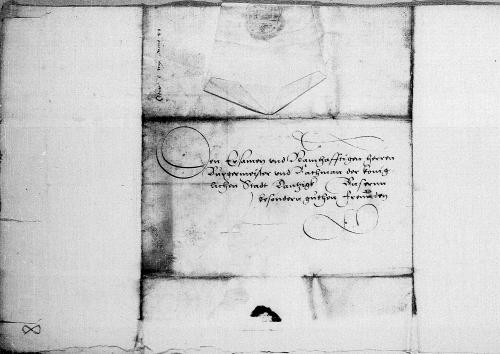 Den Ersamen vnd Namhafftigen herren
Burgermeister vnd Rathman der könig
lichen Stadt Dantzigk Vnsernn
besondern guthen freunden